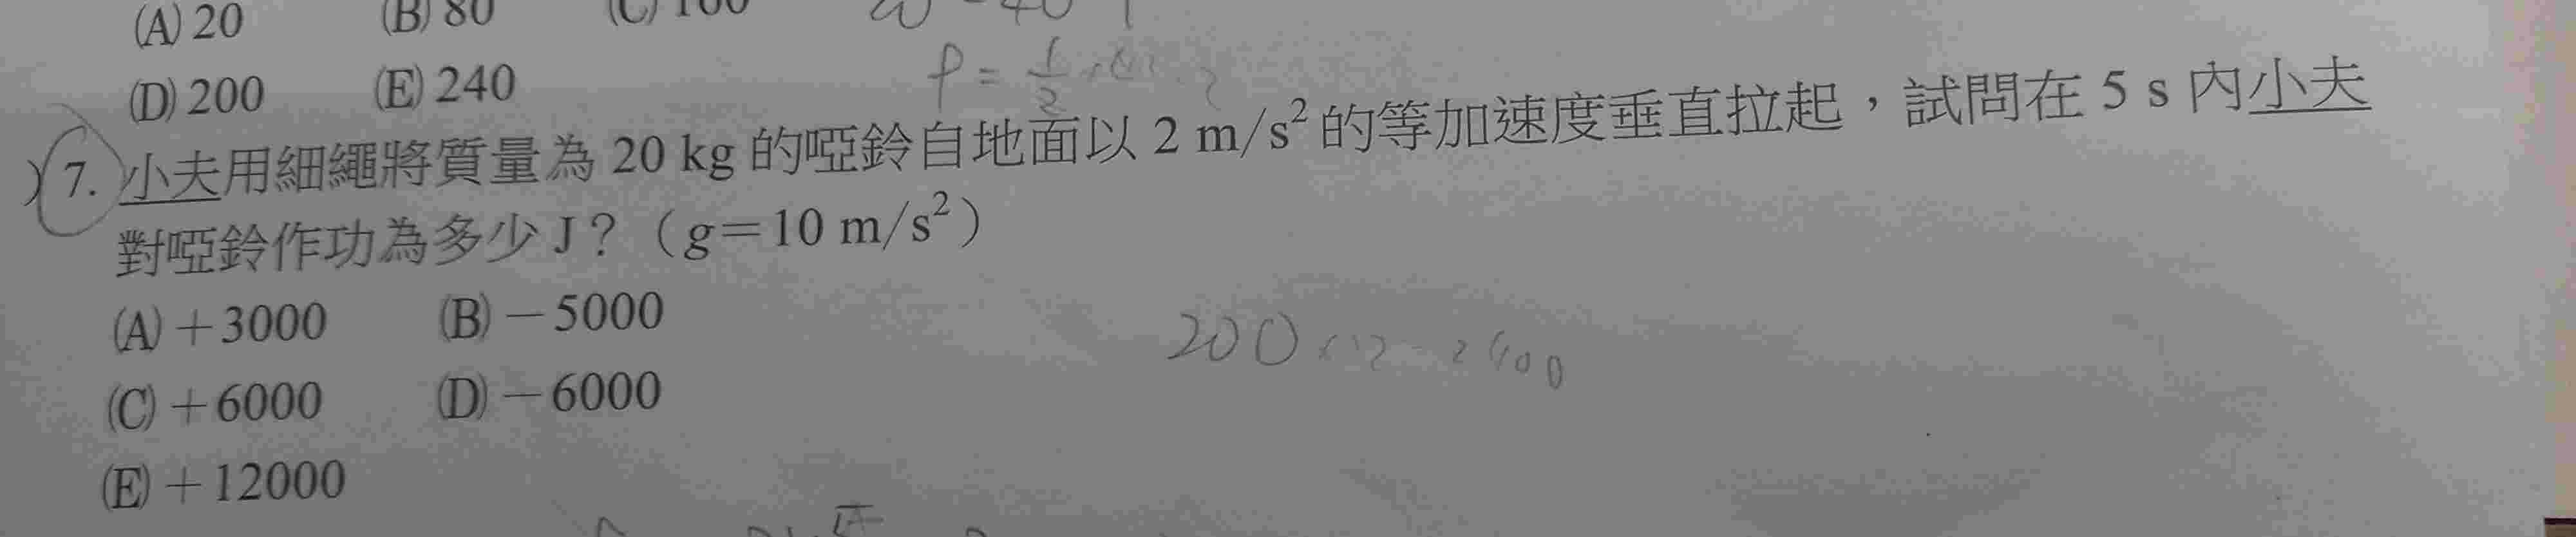 (A) 20 (B) 80 (C) 100
(D) 200 (E) 240
) 7. 小夫用細繩將質量為 20 kg 的啞鈴自地面以 2 m/s² 的等加速度垂直拉起，試問在 5 s 內小夫
對啞鈴作功為多少 J？（g＝10 m/s²）
(A)＋3000 (B)－5000
200
(C)＋6000 (D)－6000
(E)＋12000